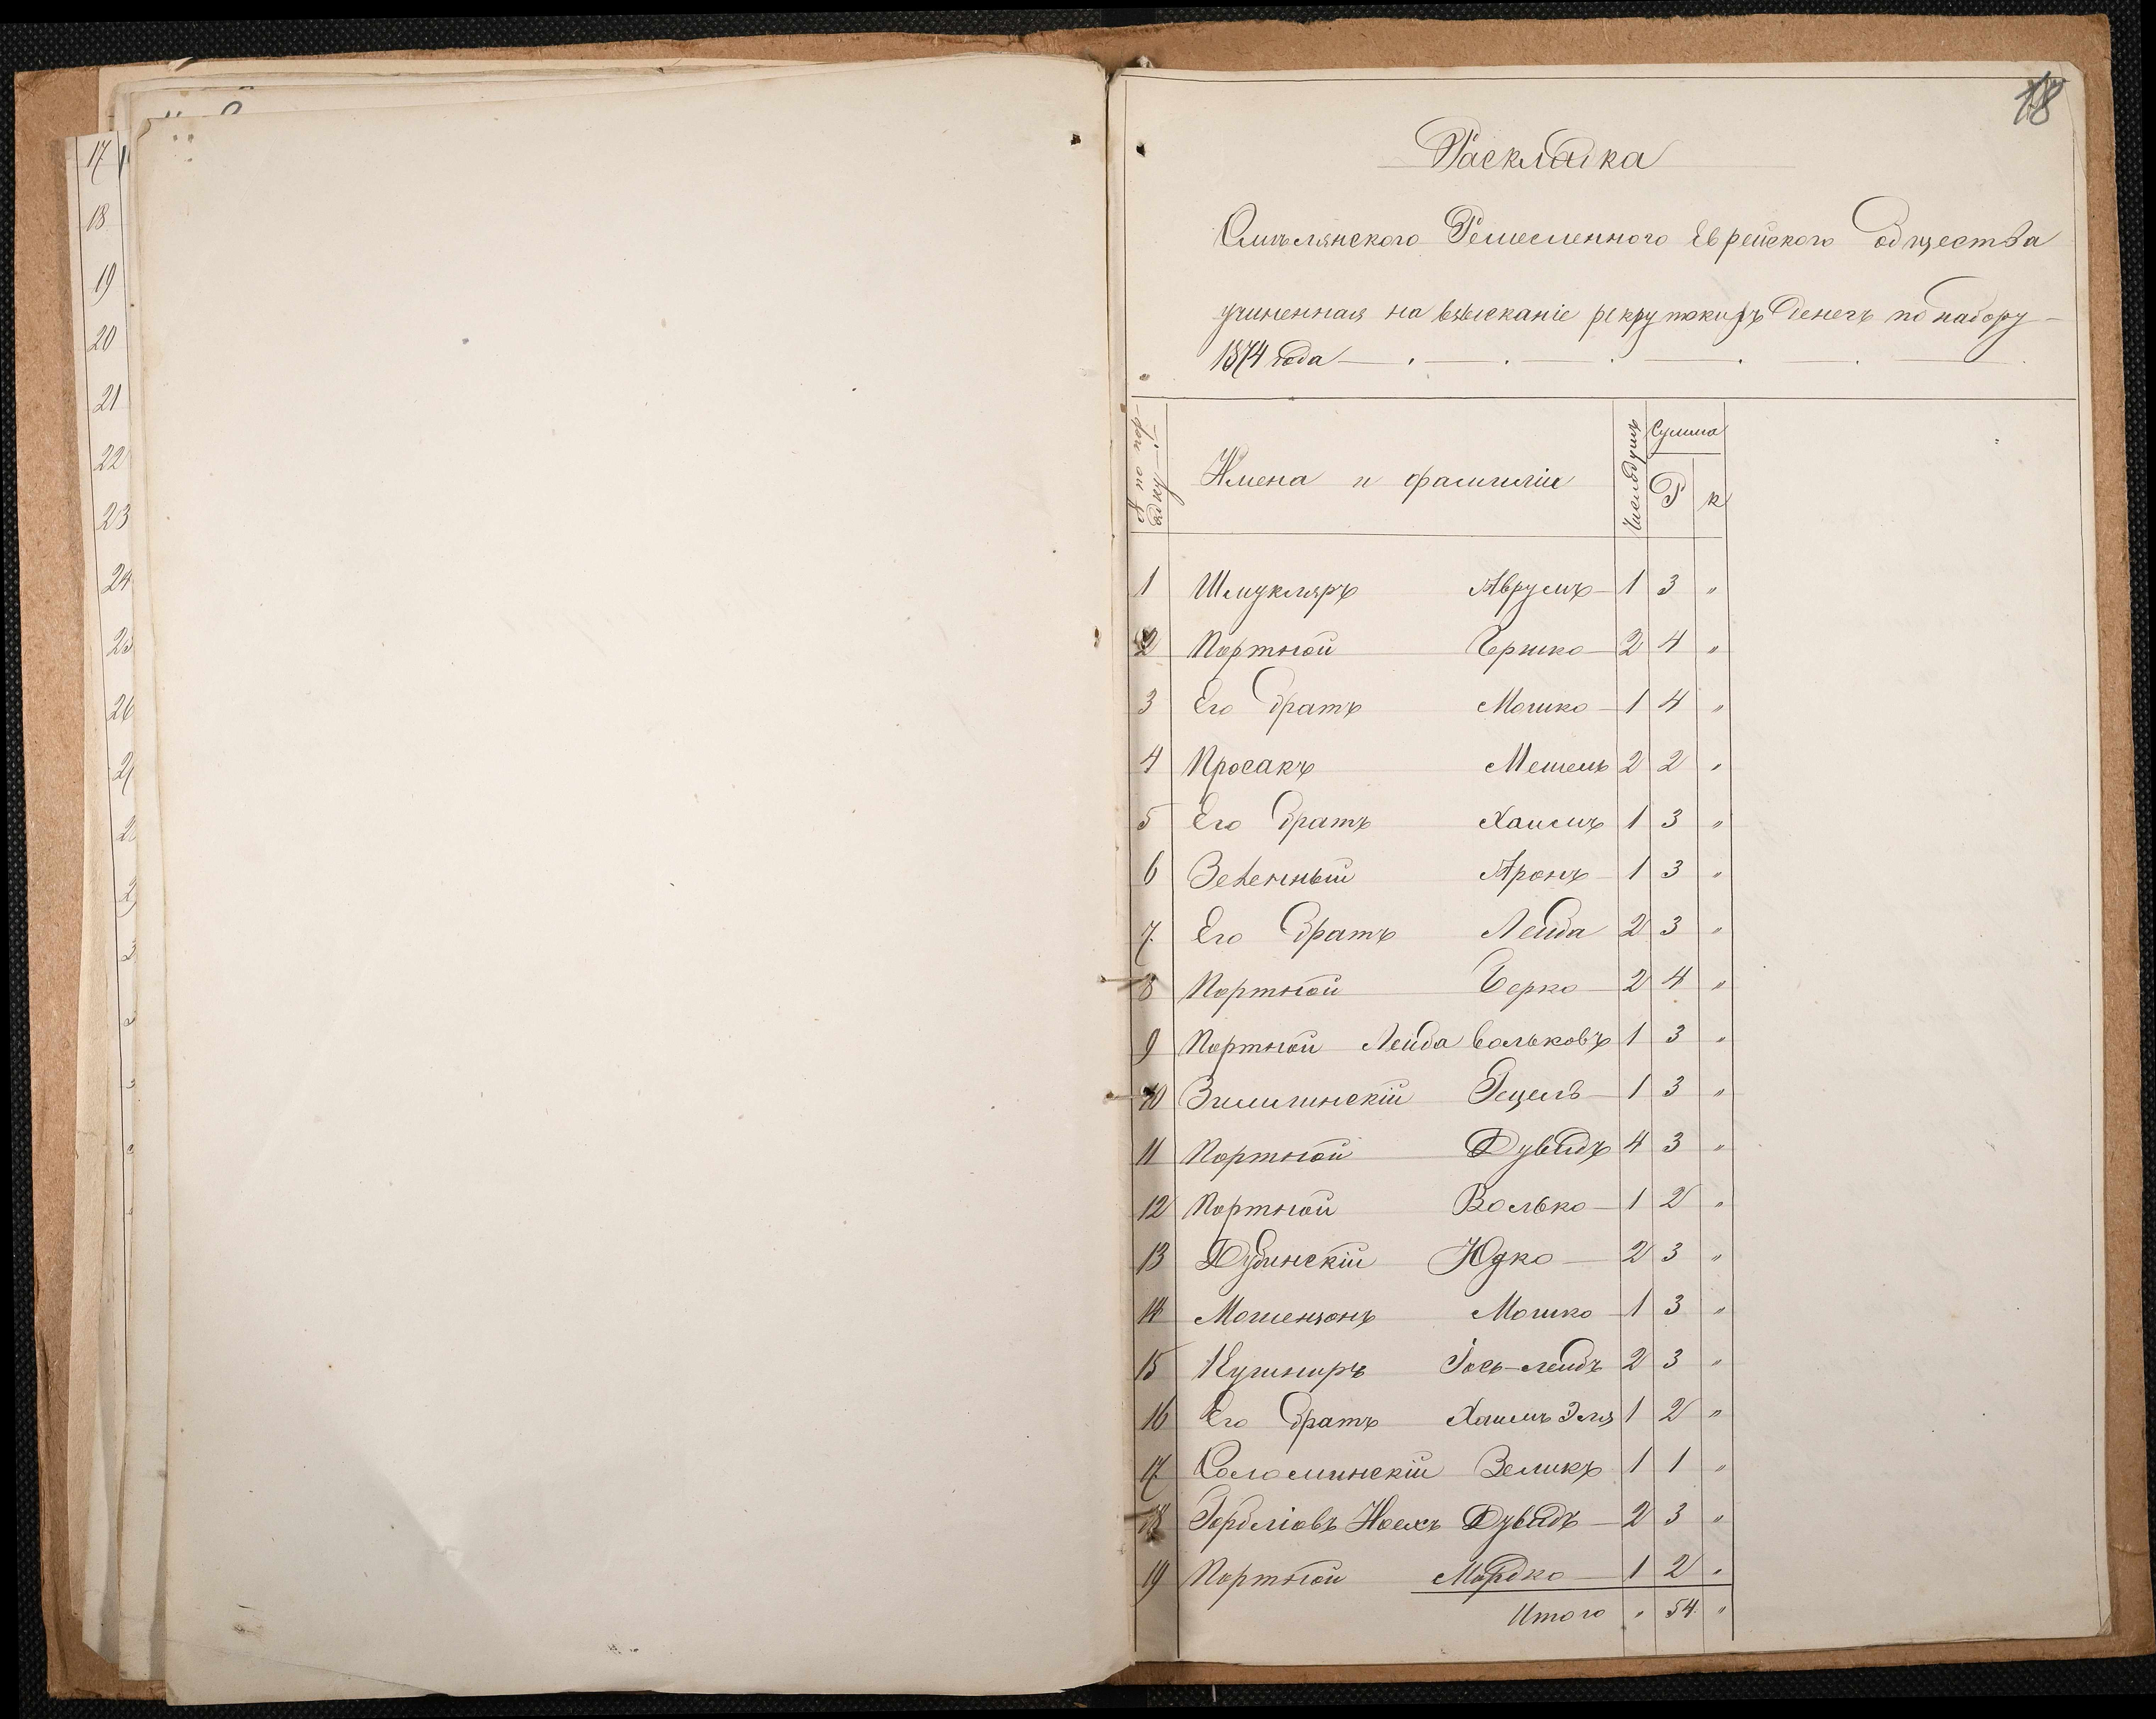 17
18
19
20
21
22
23
24
25
26
18
Раскладка
Смѣлянского Ремесленного Еврейского общества
учиненная на взысканіе рекрутскихъ денегъ по набору
1874 года
№ по поря-
дку
Имена и фамиліи
Число душъ
Сумма
Р
к
1 Шмукляръ Аврумъ 1 3 "
2 Портной Гершко 2 4 "
3 Его братъ Мошко 1 4 "
4 Просакъ Мешель 2 2 "
5 Его братъ Хаимъ 1 3 "
6 Зеленный Аронъ 1 3 "
7 Его братъ Лейба 2 3 "
8 Портной Берко 2 4 "
9 Портной Лейба Вольковъ 1 3 "
10 Зимилинскій Гецель 1 3 "
11 Портной Дувидъ 4 3 "
12 Портной Волько 1 2 "
13 Дубинскій Юдко 2 3 "
14 Мошензонъ Мошко 1 3 "
15 Кушниръ Іось-лейбъ 2 3 "
16 Его братъ Хаимъ Эля 1 2 "
17 Соломинскій Зеликъ 1 1 "
18 Горбліовъ Ноехъ Дувидъ 2 3 "
19 Портной Мордко 1 2 "
Итого " 54 "